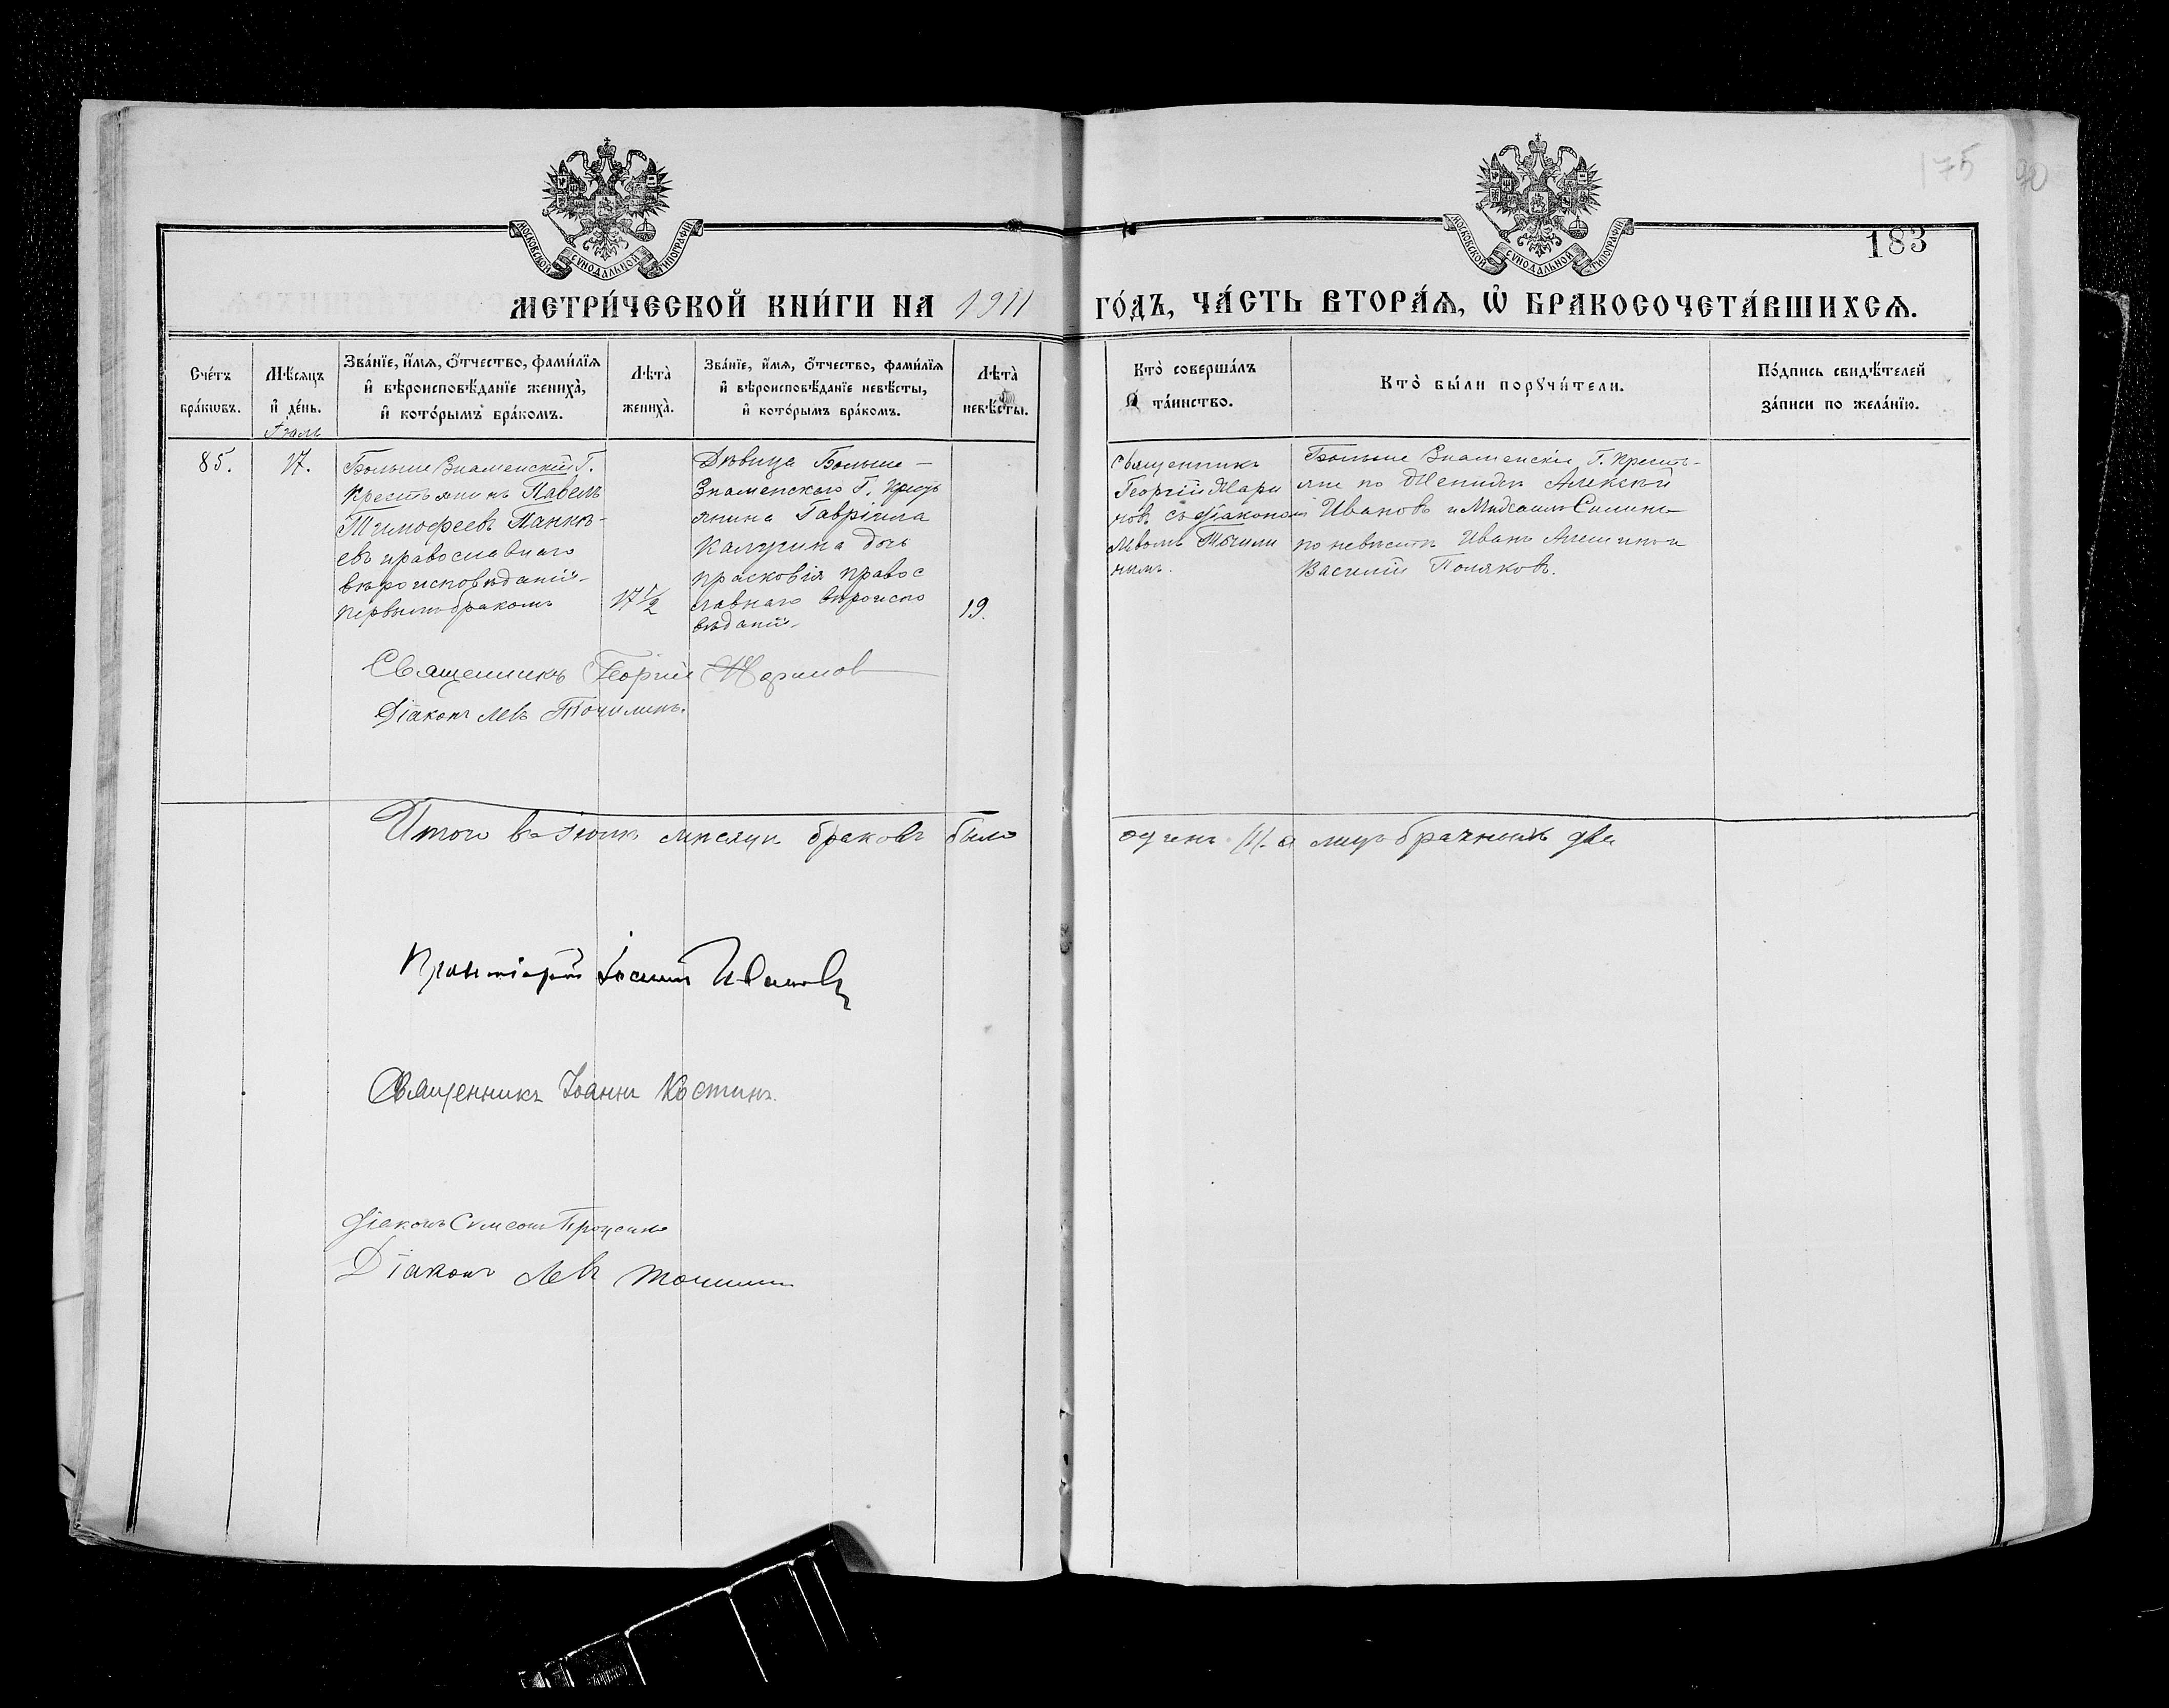 175
90
183
МОСКОВСКОЙ СѴНОДАЛЬНОЙ ТИПОГРАФІИ
МОСКОВСКОЙ СѴНОДАЛЬНОЙ ТИПОГРАФІИ
МЕТРИ́ЧЕСКОЙ КНИ́ГИ НА 1911 ГО́ДЪ, ЧА́СТЬ ВТОРА́Ѧ, Ѿ БРАКОСОЧЕТА́ВШИХСѦ.
Сче́тъ
бра́кωвъ.
Мѣ́сяцъ
и҆ де́нь.
Зва́нїе, и҆́мѧ, ѻ҆́тчество, фами́лїѧ
и҆ вѣроисповѣ́данїе жениха̀,
и҆ кото́рымъ бра́комъ.
Лѣта̀
жениха̀.
Зва́нїе, и҆́мѧ, ѻ҆́тчество, фами́лїѧ
и҆ вѣроисповѣ́данїе невѣ́сты,
и҆ кото́рымъ бра́комъ.
Лѣта̀
невѣ́сты.
Кто̀ соверша́лъ
та́инство.
Кто̀ бы́ли порꙋчи́тели.
По́дпись свидѣ́телей
за́писи по жела́нїю.
85.
17.
Больше Знаменскій Г.
Крестьянинъ Павелъ
Тимофеевъ Манкѣ-
евъ православнаго
вѣроисповѣданія
первымъ бракомъ
17 1/2
Дѣвица Больше-
Знаменскаго Г. Крест
янина Гавріила
Калугина дочь
Прасковія правос
лавнаго вѣроиспо
вѣданія
19.
Священникъ
Георгій Мари
новъ съ діакономъ
Львомъ Точили
нымъ.
Больше Знаменскіе Г. Кресть-
яне по женихѣ Алексѣй
Ивановъ и Силинъ
по невѣстѣ Иванъ и
Василій Поляковъ.
Священникъ Георгій Мариновъ
Діаконъ Левъ Точилинъ.
Итого въ Іюлѣ мѣсяцѣ браковъ было
одинъ /1/. а лицъ брачныхъ два
Ивановъ
Священникъ Іоаннъ Костинъ.
Діаконъ Симеонъ Проценко
Діаконъ Левъ Точилинъ